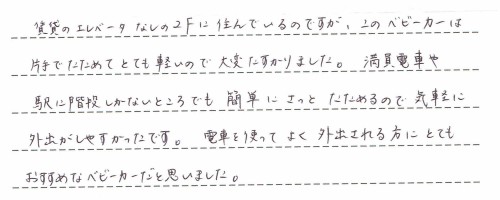 賃貸のエレベータなしの2Fに住んでいるのですが、このベビーカーは
片手でたためてとても軽いので大変たすかりました。 満員電車や
駅に階段しかないところでも 簡単にさっと たためるので 気軽に
外出がしやすかったです。 電車を使って よく 外出される方に とても
おすすめなベビーカーだと思いました。